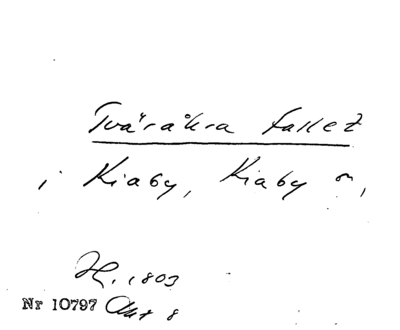 Tväråkra fallet
i Kiaby, Kiaby sn,
H. 1803
Nr 10797 Akt 8